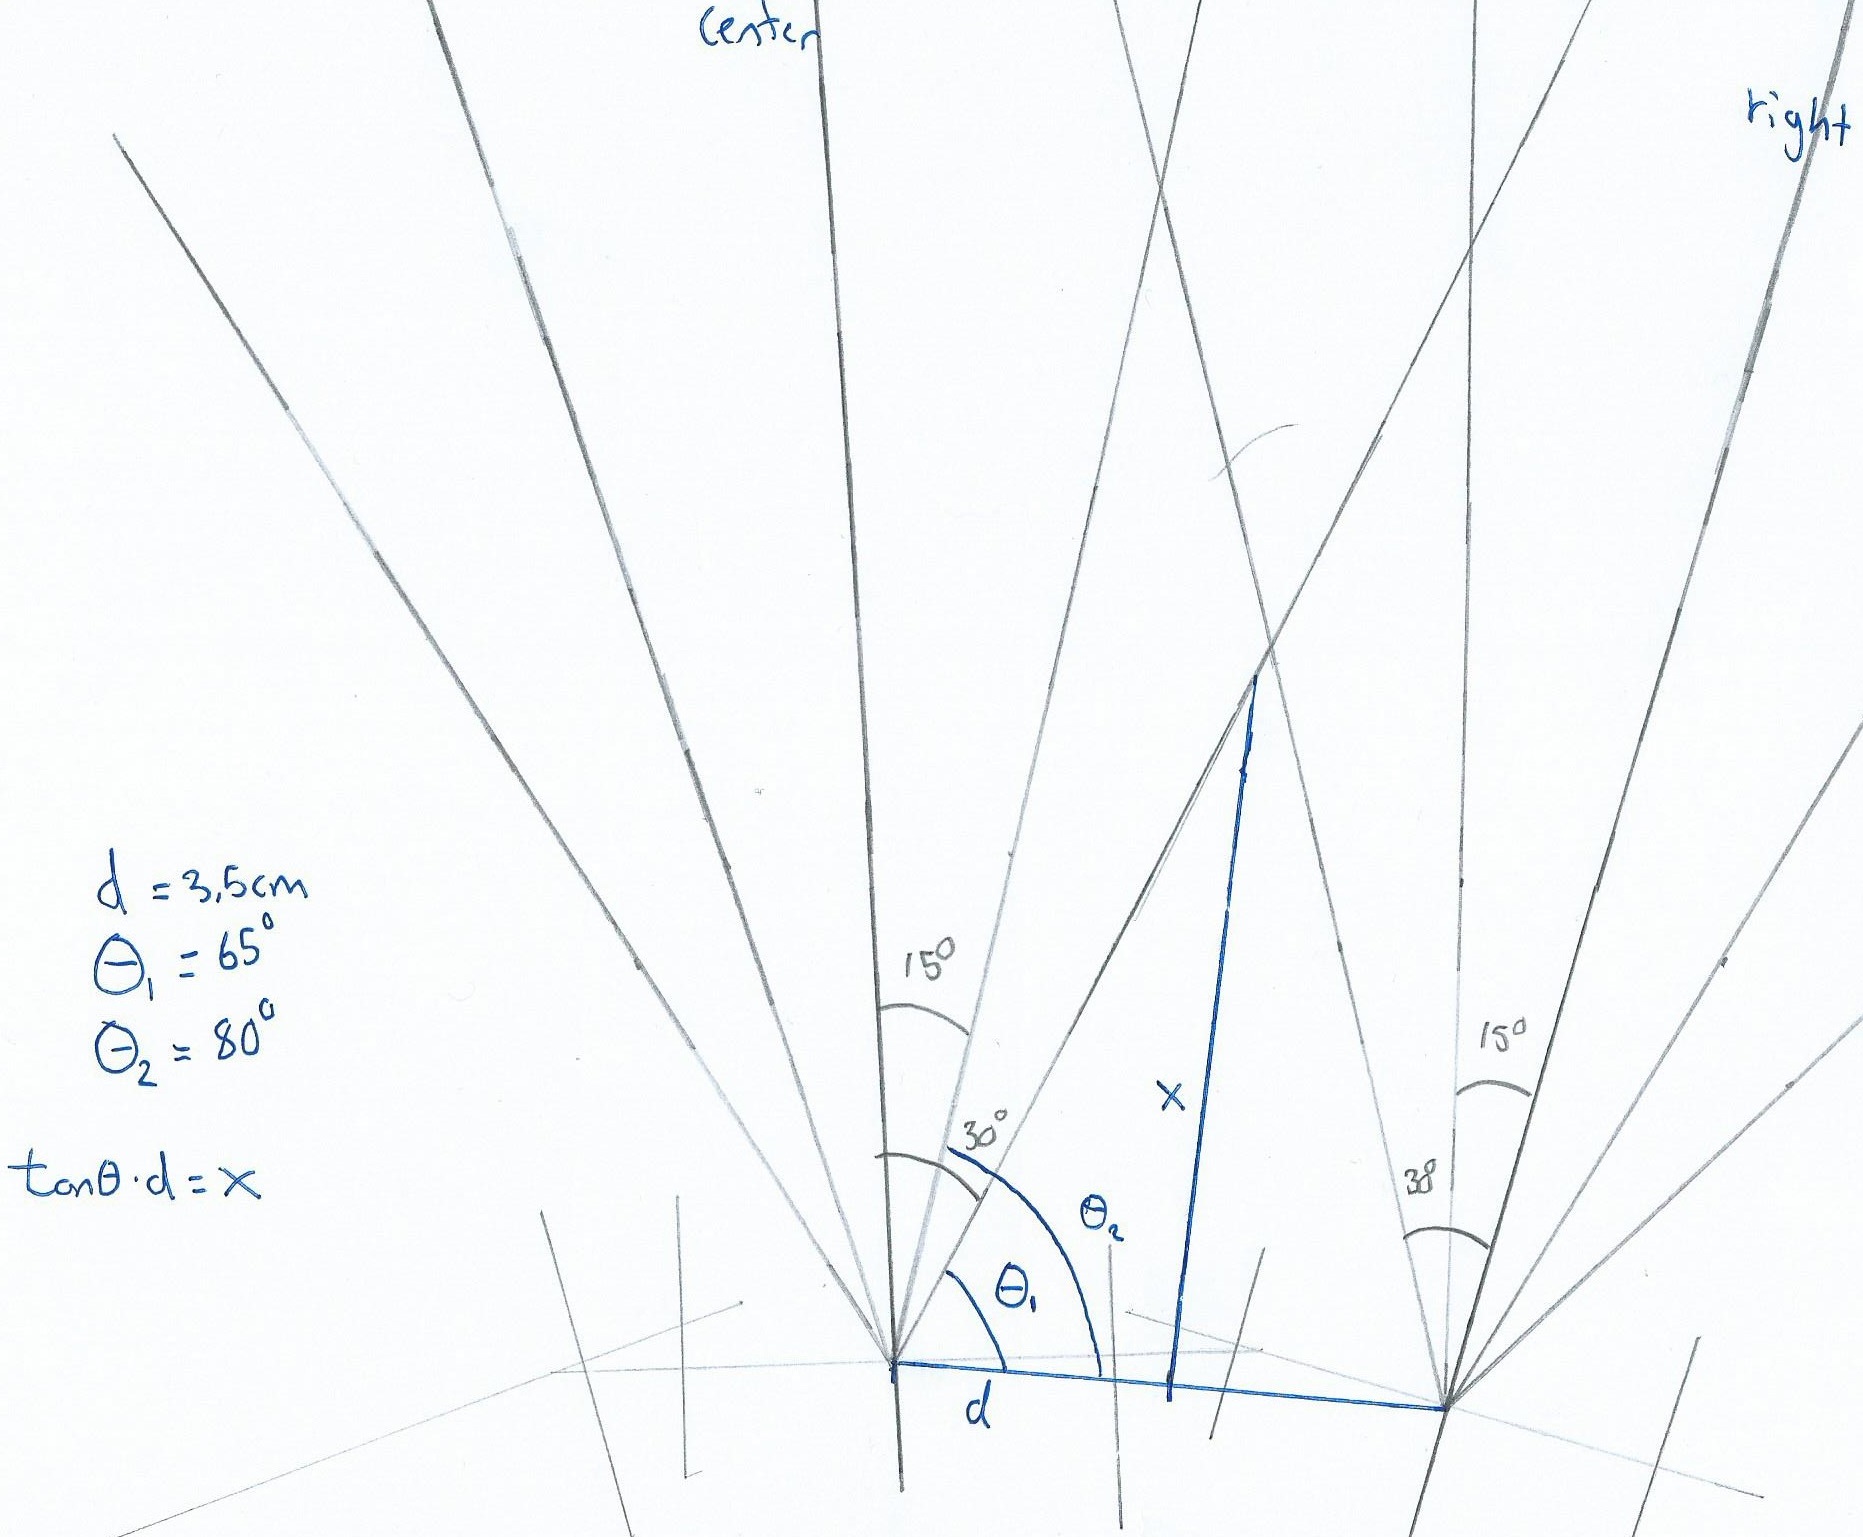 center
right
d = 3,5cm
θ₁ = 65°
θ₂ = 80°
tanθ·d = x
15°
30°
x
θ₂
θ₁
d
15°